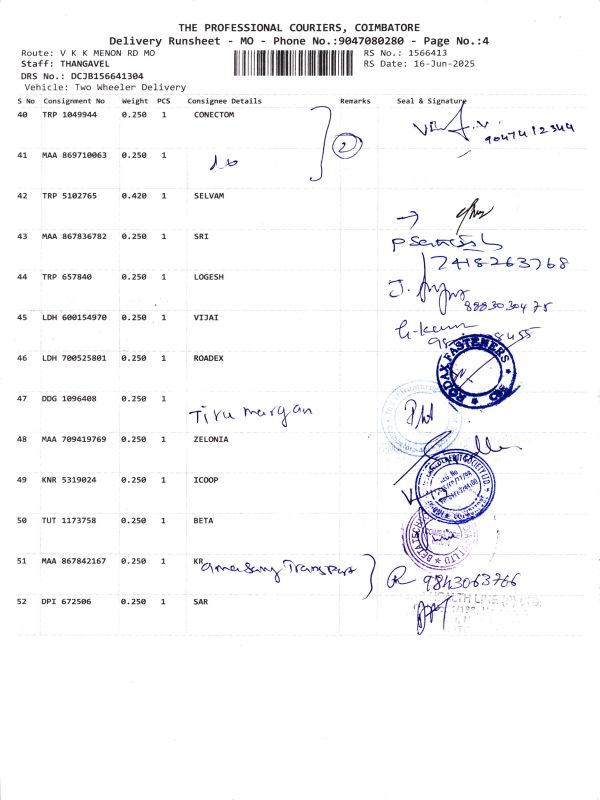 THE PROFESSIONAL COURIERS, COIMBATORE
Delivery Runsheet - MO - Phone No.:9047080280 - Page No.:4
Route: V K K MENON RD MO RS No.: 1566413
Staff: THANGAVEL RS Date: 16-Jun-2025
DRS No.: DCJB156641304
Vehicle: Two Wheeler Delivery
S No Consignment No Weight PCS Consignee Details Remarks Seal & Signature
40 TRP 1049944 0.250 1 CONECTOM
2 9047412344
41 MAA 869710063 0.250 1
42 TRP 5102765 0.420 1 SELVAM
43 MAA 867836782 0.250 1 SRI
7418263768
44 TRP 657840 0.250 1 LOGESH
8883030475
45 LDH 600154970 0.250 1 VIJAI
46 LDH 700525801 0.250 1 ROADEX
FASTENERS
47 DDG 1096408 0.250 1
Tiru murgan
48 MAA 709419769 0.250 1 ZELONIA
49 KNR 5319024 0.250 1 ICOOP
50 TUT 1173758 0.250 1 BETA
51 MAA 867842167 0.250 1 KR
Transport 9843063766
52 DPI 672506 0.250 1 SAR